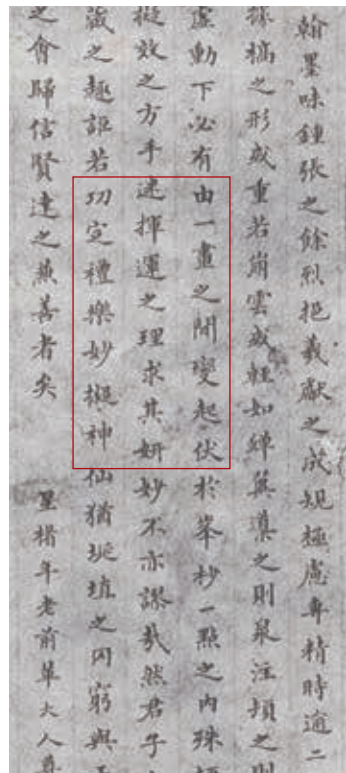 翰墨味鍾張之餘烈挹羲獻之成規極慮專精時逾二
據槁之形或重若崩雲或輕如蟬翼導之則泉注頓之則
虛動下必有由一畫之間變起伏於峯杪一點之内殊
擬效之方手迷揮運之理求其妍妙不亦謬哉然君子
箴之趣詎若功定禮樂妙擬神仙猶埏埴之罔窮與
之會歸信賢達之兼善者矣 楷年老前草大人尊